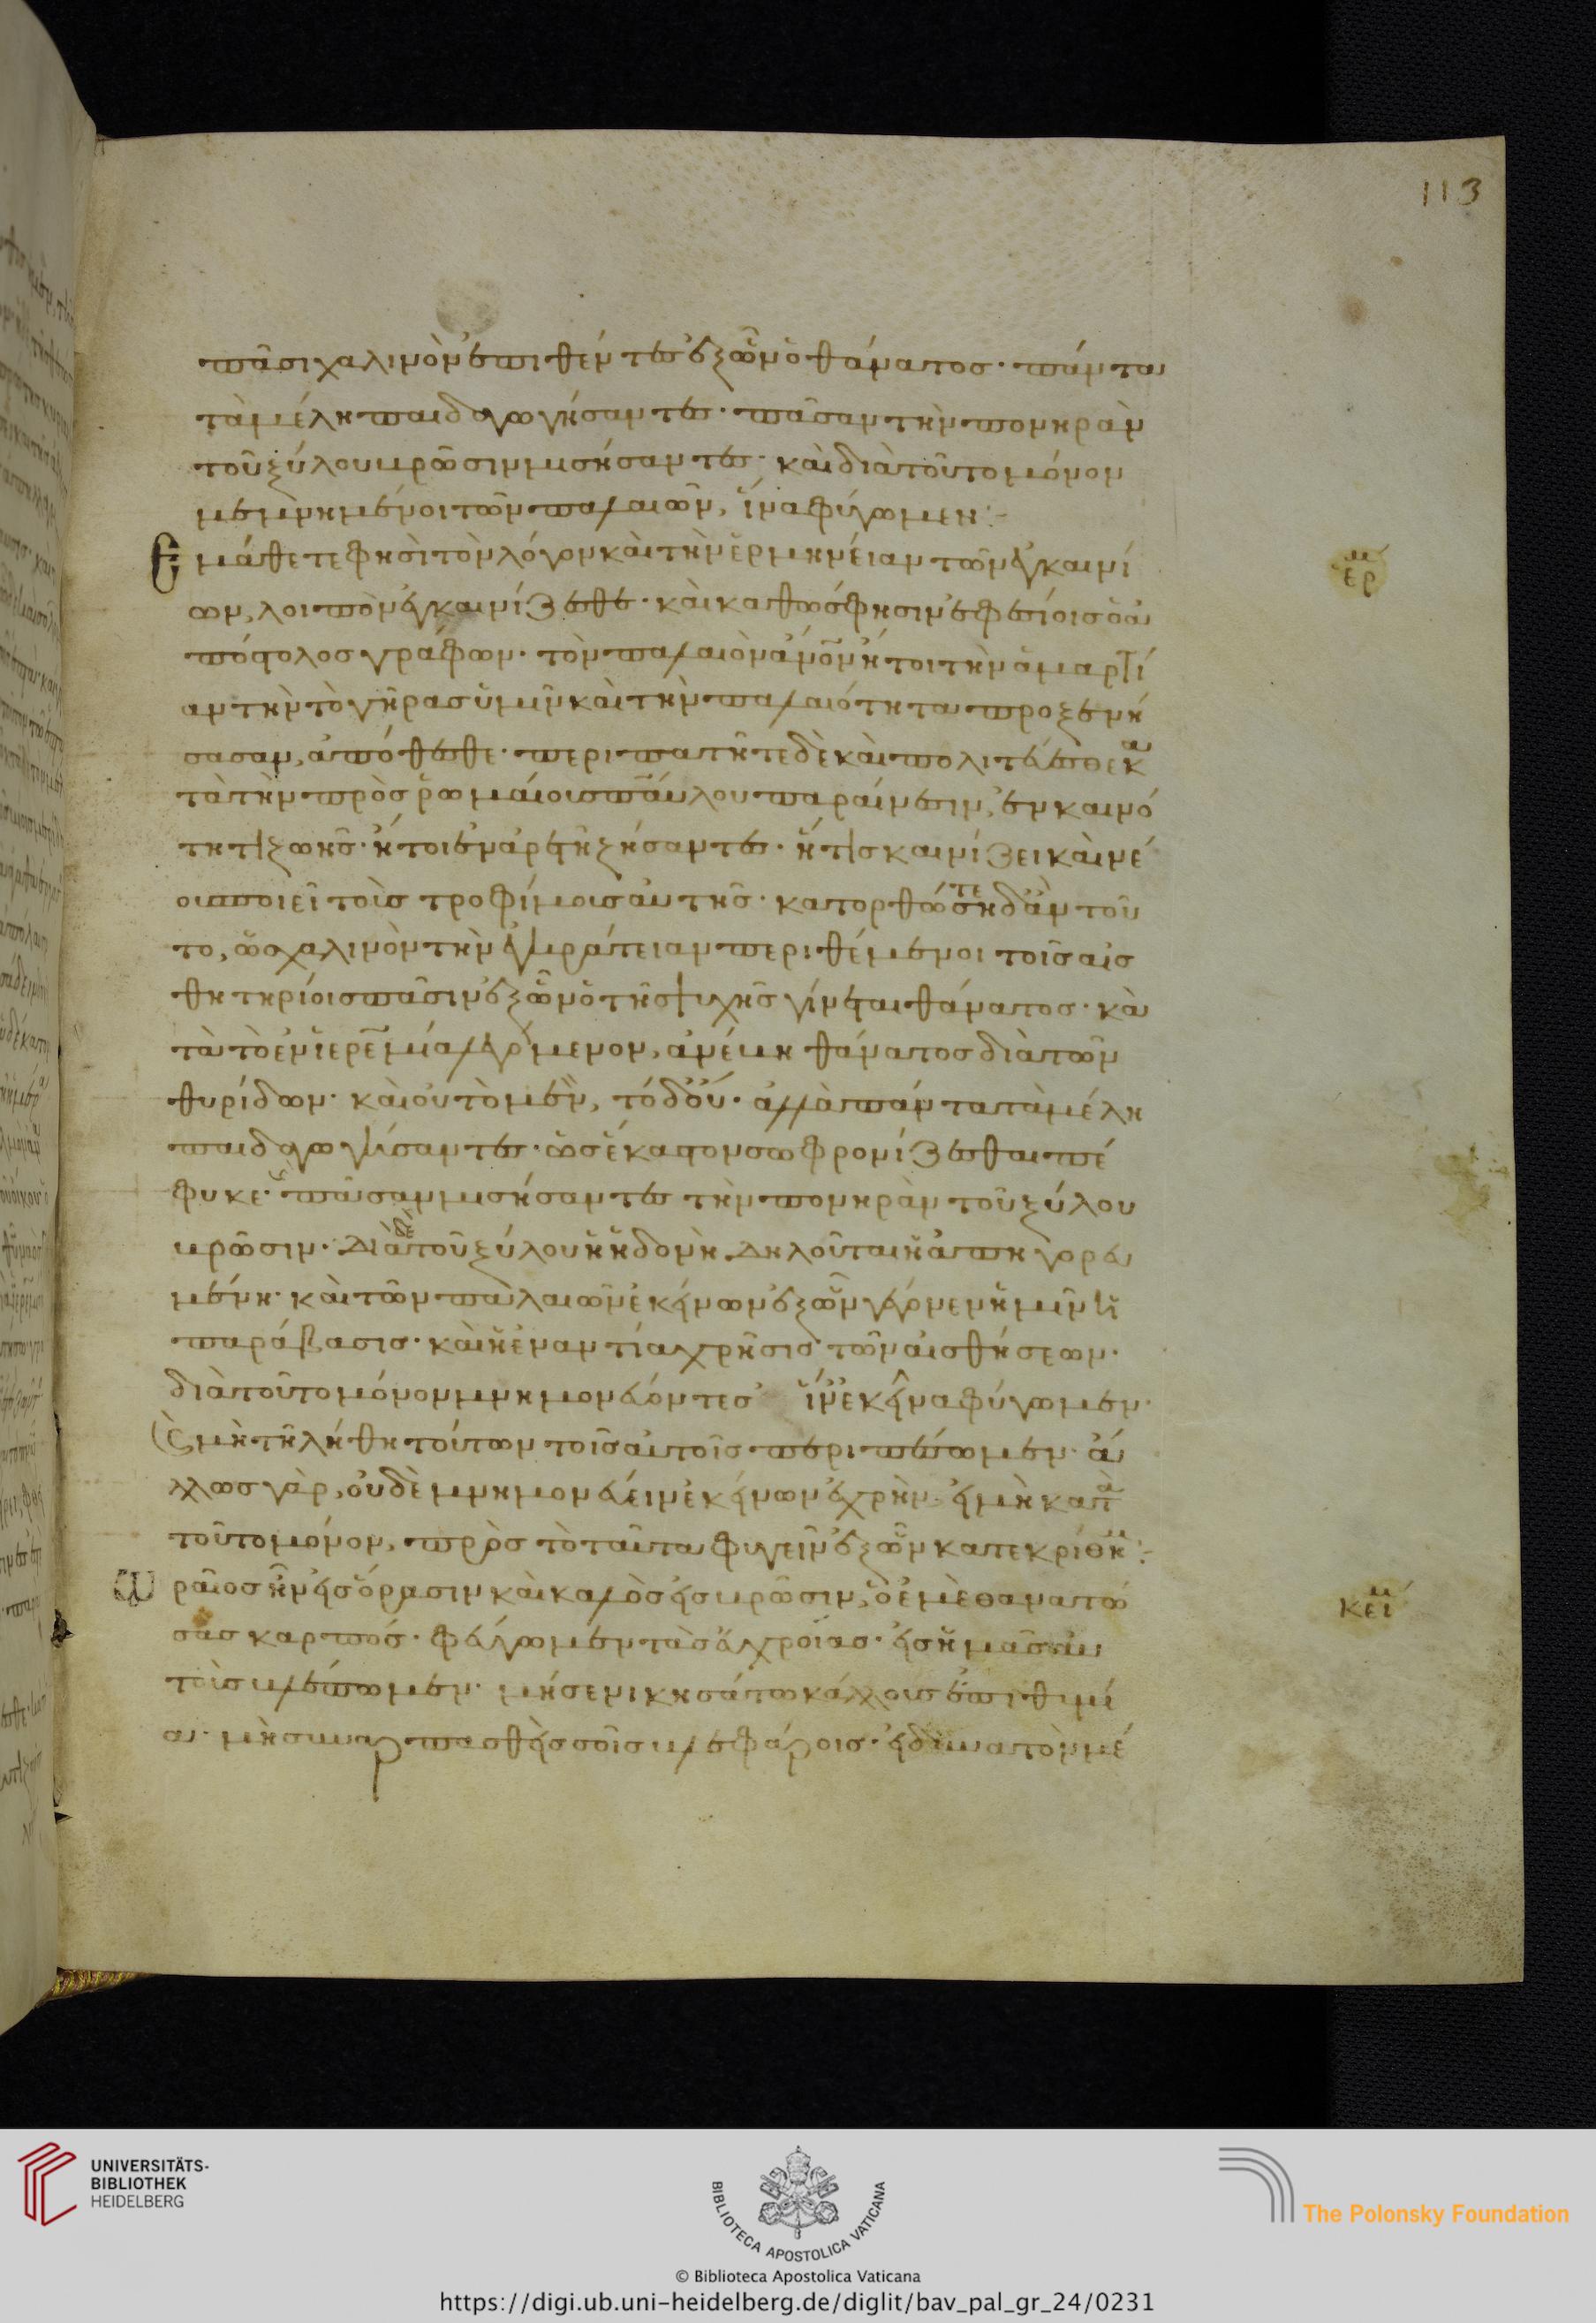 113
πᾶσι χαλινὸν ἐπιθέντες ἐξ ὧν ὁ θάνατος· πάντα
τὰ μέλη παιδαγωγήσαντες· πᾶσαν τὴν πονηρὰν
τοῦ ξύλου βρῶσιν μισήσαντες· καὶ διὰ τοῦτο μόνον
μεμνημένοι τῶν παλαιῶν, ἵνα φύγωμεν:-
Ἐμάθετε φησὶ τὸν λόγον καὶ τὴν ἑρμηνείαν τῶν ἐγκαινί
ων, λοιπὸν ἐγκαινίζεσθε· καὶ καθώς φησιν ἐφεσίοις ὁ ἀ
πόστολος γράφων· τὸν παλαιὸν ἄνον ἤτοι τὴν ἁμαρτί
αν τὴν τὸ γῆρας ὑμῖν καὶ τὴν παλαιότητα προξενή
σασαν, ἀπόθεσθε· περιπατῆτε δὲ καὶ πολιτεύεσθε κα
τὰ τὴν πρὸς ῥωμαίοις παύλου παραίνεσιν, ἐν καινό
τητι ζωῆς· ἤτοι ἐν ἀρετῆ ζήσαντες· ἥτις καινίζει καὶ νέ
οις ποιεῖ τοῖς τροφίμοις αὐτῆς· κατορθώσητε δ' ἂν τοῦ
το, ὡς χαλινὸν τὴν ἐγκράτειαν περιθέμενοι τοῖς αἰσ
θητηρίοις πᾶσιν ἐξ ὧν ὁ τῆς ψυχῆς γίνεται θάνατος· κα
τὰ τὸ ἐν ἱερεμία λεγόμενον, ἀνέβη θάνατος διὰ τῶν
θυρίδων· καὶ οὐ τὸ μὲν, τὸ δ' οὔ· ἀλλὰ πάντα τὰ μέλη
παιδαγωγήσαντες· ὡς ἕκαστον σωφρονίζεσθαι πέ
φυκε· πᾶσαν μισήσαντες τὴν πονηρὰν τοῦ ξύλου
βρῶσιν· Διὰ δὲ τοῦ ξύλου ἡ ἡδονὴ δηλοῦται ἡ ἀπηγορευ
μένη· καὶ τῶν παλαιῶν ἐκείνων ἐξ ὧν γέγονεν ἡμῖν ἡ
παράβασις· καὶ ἡ ἐναντία χρῆσις τῶν αἰσθήσεων·
διὰ τοῦτο μόνον μνημονεύοντες ἵν' ἐκεῖνα φύγωμεν·
ὡς μὴ τῆ λήθη τούτων τοῖς αὐτοῖς περιπέσωμεν· ἄ
λλως γὰρ, οὐδὲ μνημονεύειν ἐκείνων ἐχρὴν· εἰ μὴ κατὰ
τοῦτο μόνον, πρὸς τὸ ταῦτα φυγεῖν ἐξ ὧν κατεκρίθημεν:-
Ὡραῖος ἦν εἰς ὅρασιν καὶ καλὸς εἰς βρῶσιν, ὁ ἐμὲ θανατώ
σας καρπός· φεύγωμεν τὰς εὐχροίας· εἰς ἡμᾶς αὐ
τοὺς βλέπωμεν· μή σε νικησάτω κάλλους ἐπιθυμί
α· μὴ συναρπασθῆς σοῖς βλεφάροις· εἰ δυνατὸν μέ
ερμ
κείμ
UNIVERSITÄTS-
BIBLIOTHEK
HEIDELBERG
BIBLIOTECA APOSTOLICA VATICANA
© Biblioteca Apostolica Vaticana
The Polonsky Foundation
https://digi.ub.uni-heidelberg.de/diglit/bav_pal_gr_24/0231